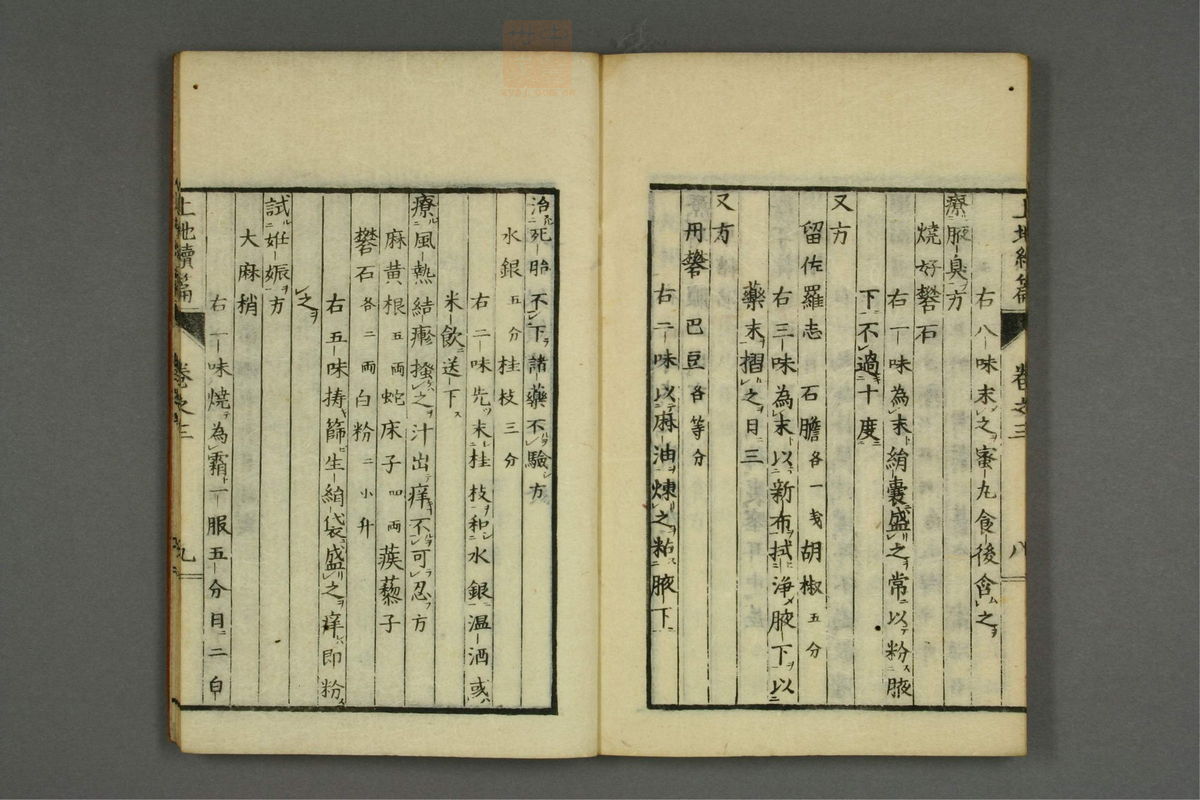 右八味末之蜜丸食後含之
療腋臭方
燒好礬石
右一味為末絹嚢盛之常以粉腋
下不過十度
又方
留佐羅志 石膽各一戔胡椒五分
右三味為末以新布拭浄腋下以
藥末摺之日三
又方
丹礬 巴豆各等分
右二味以麻油煉之粘腋下
卷之三
八
治死胎不下諸藥不驗方
水銀五分桂枝三分
右二味先末桂枝和水銀温酒或
米飲送下
療風熱結瘮搔之汁出痒不可忍方
麻黄根五両蛇床子四両蒺藜子
礬石各二両白粉二小升
右五味擣篩生絹袋盛之痒即粉
之
試姙娠方
大麻梢
右一味燒為霜一服五分日二白
上地續篇
卷之三
九